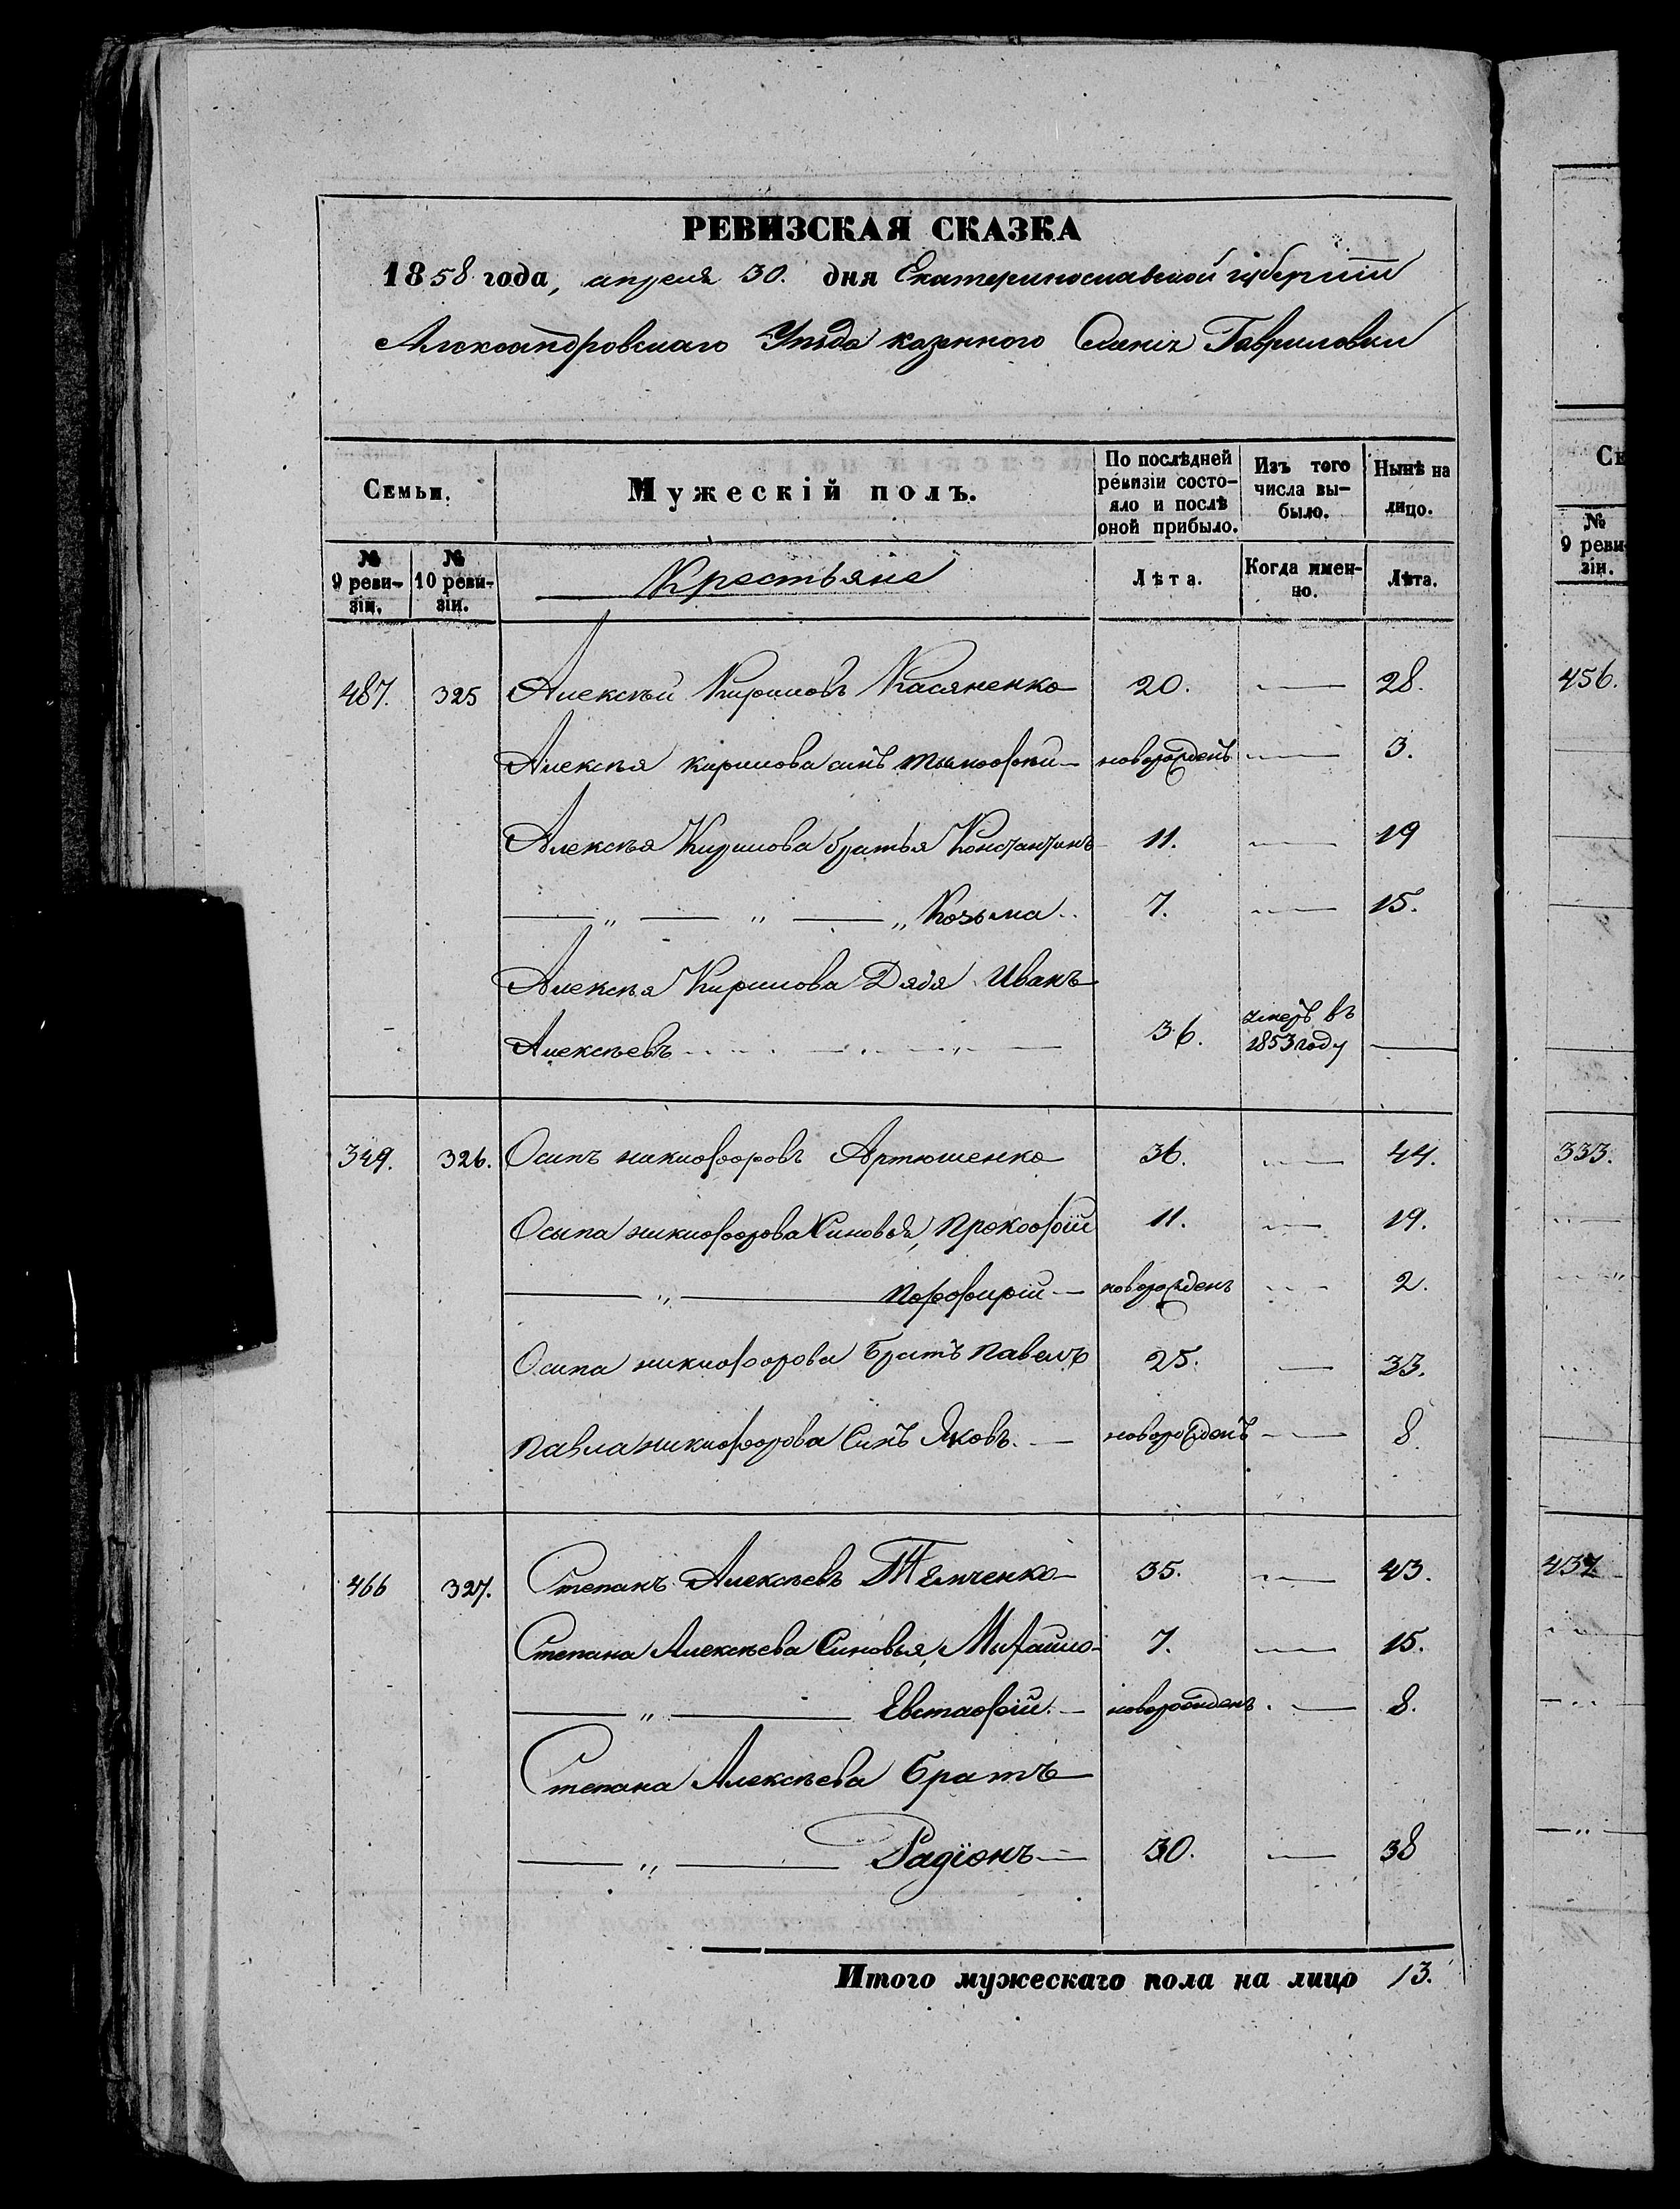 РЕВИЗСКАЯ СКАЗКА
1858 года, апреля 30. дня Екатеринославской губернии
Александровскаго Уѣзда казенного Селенія Гавриловки
Семьи.
Мужескій полъ.
По послѣдней ревизіи состо-
яло и послѣ
оной прибыло.
Изъ того
числа вы-
было.
Нынѣ на
лицо.
№
9 реви-
зіи.
№
10 реви-
зіи.
Крестьяне
Лѣта.
Когда имен-
но.
Лѣта.
487. 325 Алексѣй Кириловъ Касяненко 20. — 28.
Алексѣя Кирилова синъ Тымофѣй — новорожденъ — 3.
Алексѣя Кирилова братья Константинъ 11. — 19
— „ — „ — „ Козьма 7. — 15.
Алексѣя Кирилова Дядя Иванъ
Алексѣевъ 36. умеръ въ 1853 году —
349. 326. Осипъ никифоровъ Артюшенко 36. — 44.
Осыпа никифорова Синовья, Прокофій 11. — 19.
— „ — Порфирій — новорожденъ — 2.
Осипа никифорова Братъ павелъ 25. — 33.
павла никифорова Синъ Яковъ. — новорожденъ — 8.
466 327. Степанъ Алексѣевъ Темченко 35. — 43.
Степана Алексѣева Синовья, Михайло 7. — 15.
— „ — Евстафій. — новорожденъ — 8.
Степана Алексѣева Братъ
— „ — Радіонъ — 30. — 38
Итого мужескаго пола на лицо 13.
№
9 реви
зіи.
456.
333.
437